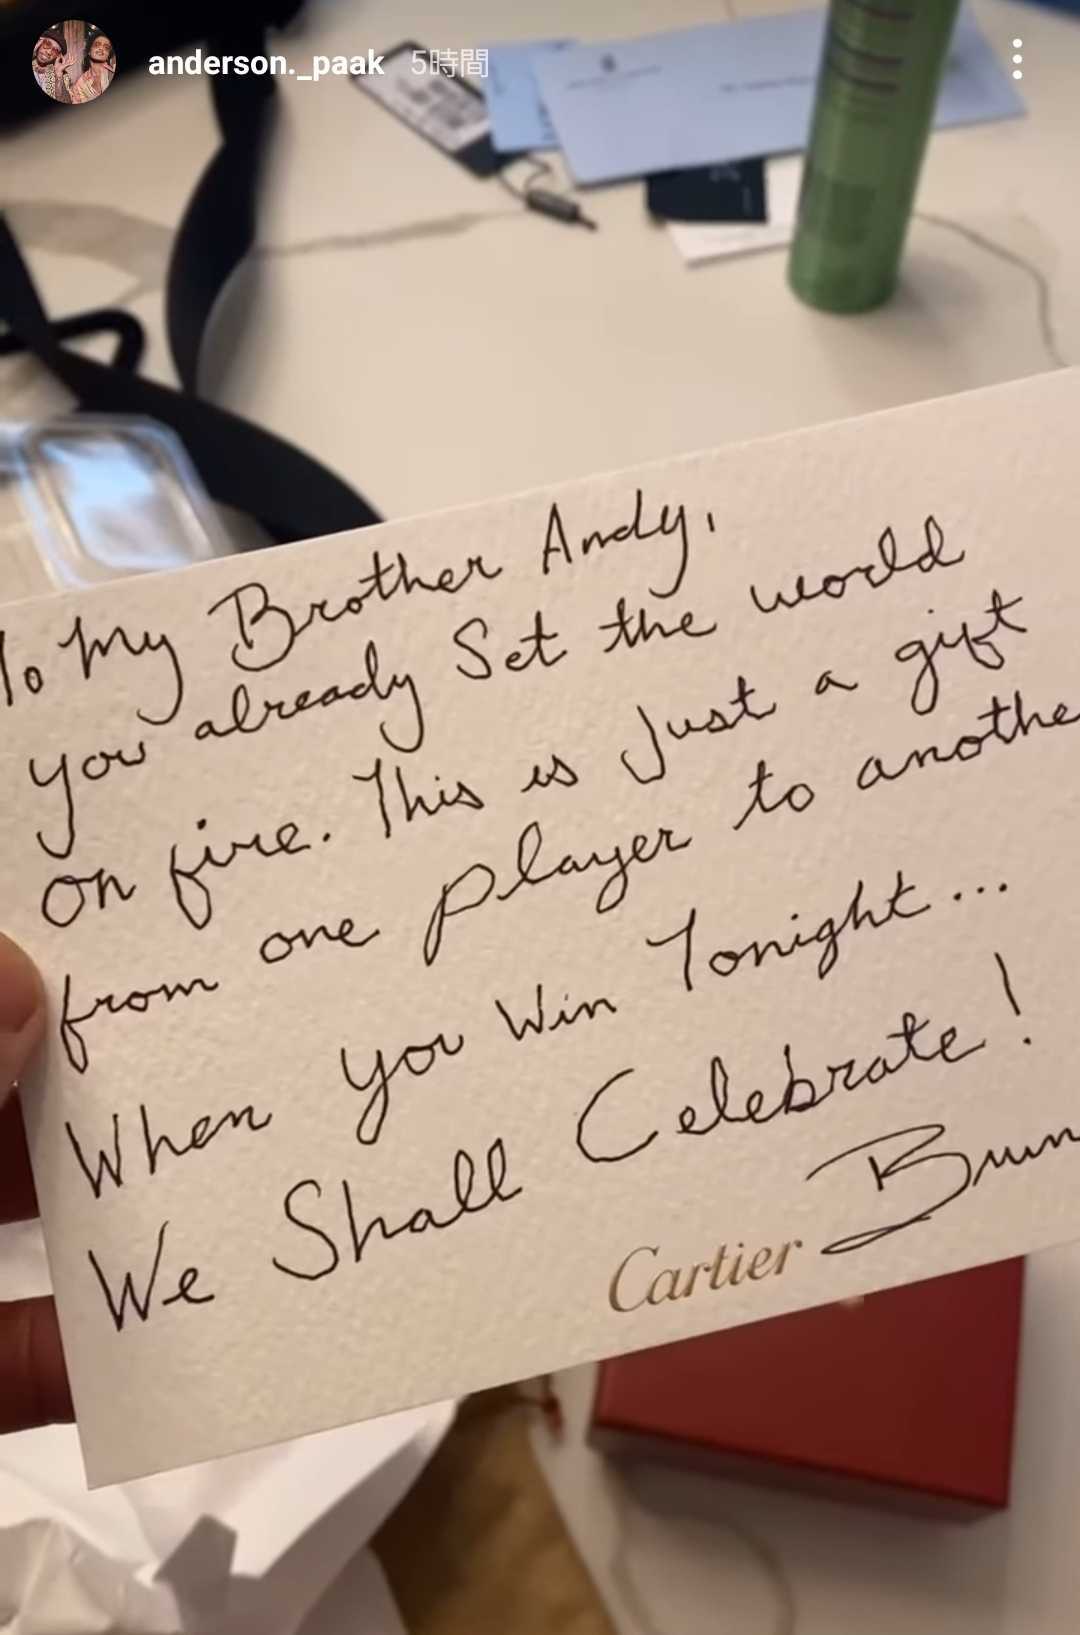 anderson._paak 5時間
To My Brother Andy,
you already Set the world
on fire. This is Just a gift
from one player to anothe
When you Win Tonight...
We Shall Celebrate!
Brun
Cartier